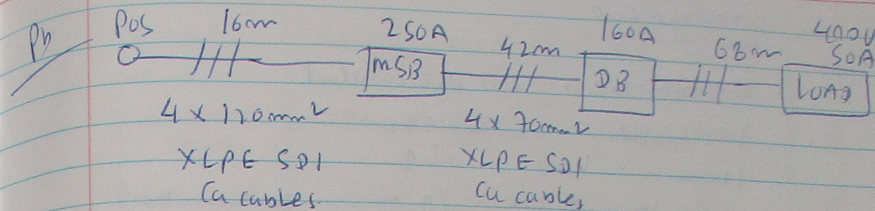 Pb POS 16m 250A 42m 160A 68m 400V
50A
MSB DB LOAD
4 x 120mm² 4 x 70mm²
XLPE SDI XLPE SDI
Cu cables Cu cables